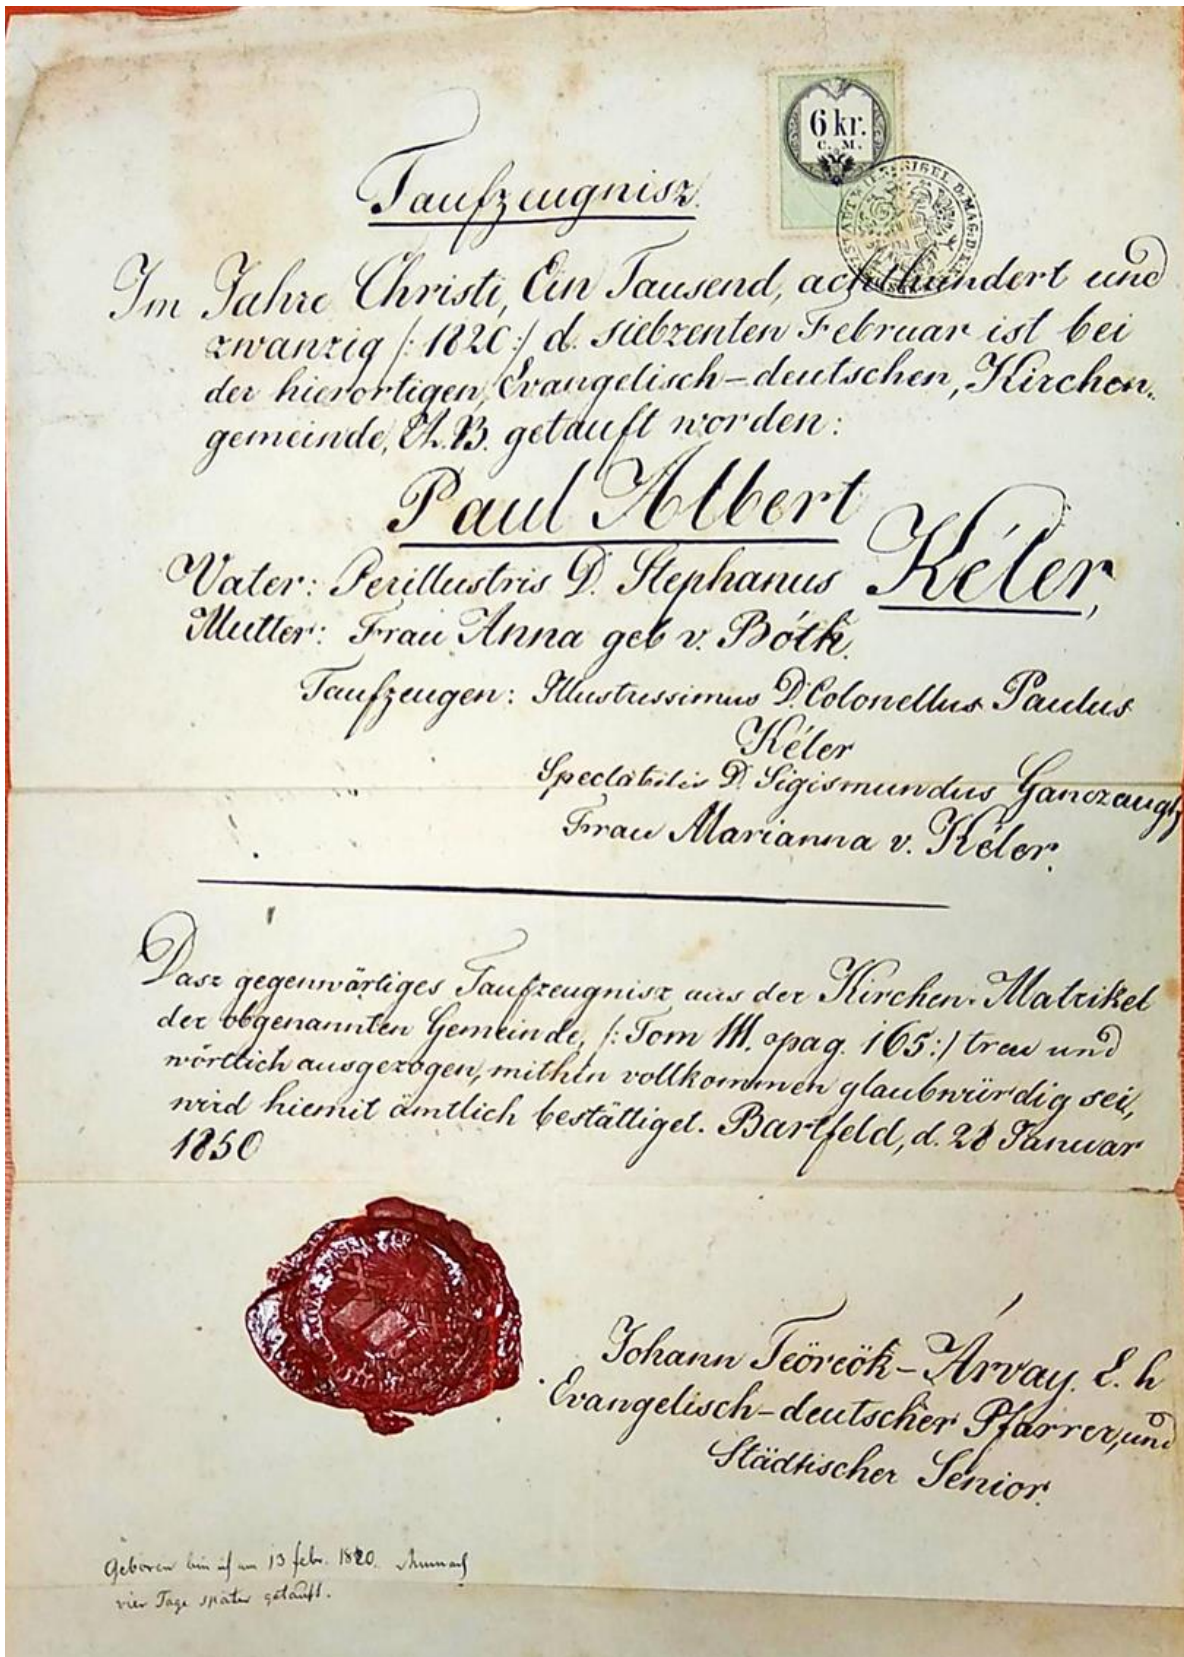 6 kr.
C. M.
Taufzeugnisz.
Im Jahre Christi, Ein Tausend, achthundert und
zwanzig /: 1820 :/ d. siebzenten Februar ist bei
der hierortigen, Evangelisch-deutschen, Kirchen-
gemeinde, A. B. getauft worden:
Paul Albert
Kéler,
Vater: Perillustris D. Stephanus
Mutter: Frau Anna geb v. Bóth.
Taufzeugen: Illustrissimus D. Colonellus Paulus
Kéler
Spectabilis D. Sigismundus Ganczaugh
Frau Marianna v. Kéler.
Dasz gegenwärtiges Taufzeugnisz aus der Kirchen-Matrikel
der obgenannten Gemeinde, /: Tom III. pag. 165 :/ treu und
wörtlich ausgezogen, mithin vollkommen glaubwürdig sei,
wird hiemit ämtlich bestättiget. Bartfeld, d. 28 Januar
1850
Johann Teöreök-Árvay. E. h
Evangelisch-deutscher Pfarrer, und
Städtischer Senior.
Geboren bin ich am 13 febr. 1820.
vier Tage später getauft.